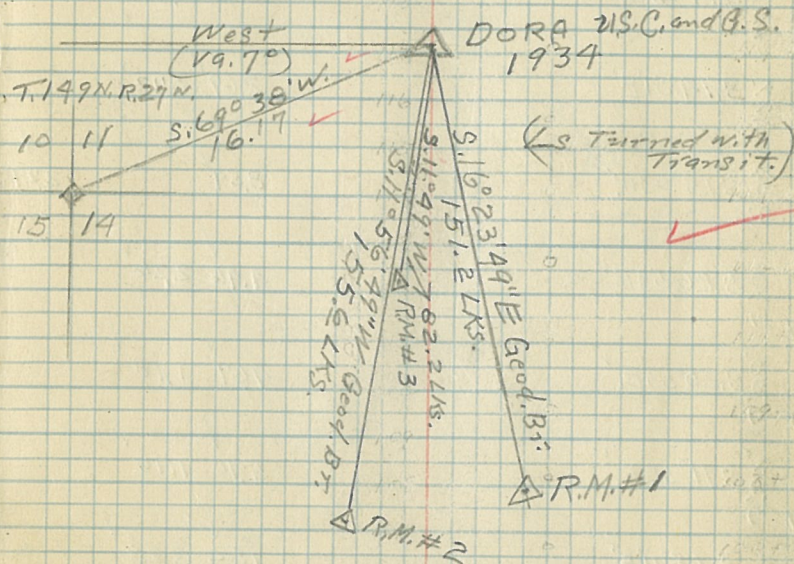 West
(Va. 7°)
DORA U.S.C. and G.S.
1934
T. 149 N. R. 27 W.
S. 69° 38' W.
16.17
10 11
15 14
(∠s Turned with
Transit.)
S. 16° 23' 49" E Geod. Br.
151.2 LKS.
S. 11° 49' W. 82.2 LKS.
R.M. #3
S. 11° 56' 49" W. Geod. Br.
155.6 LKS.
R.M. #1
R.M. #2